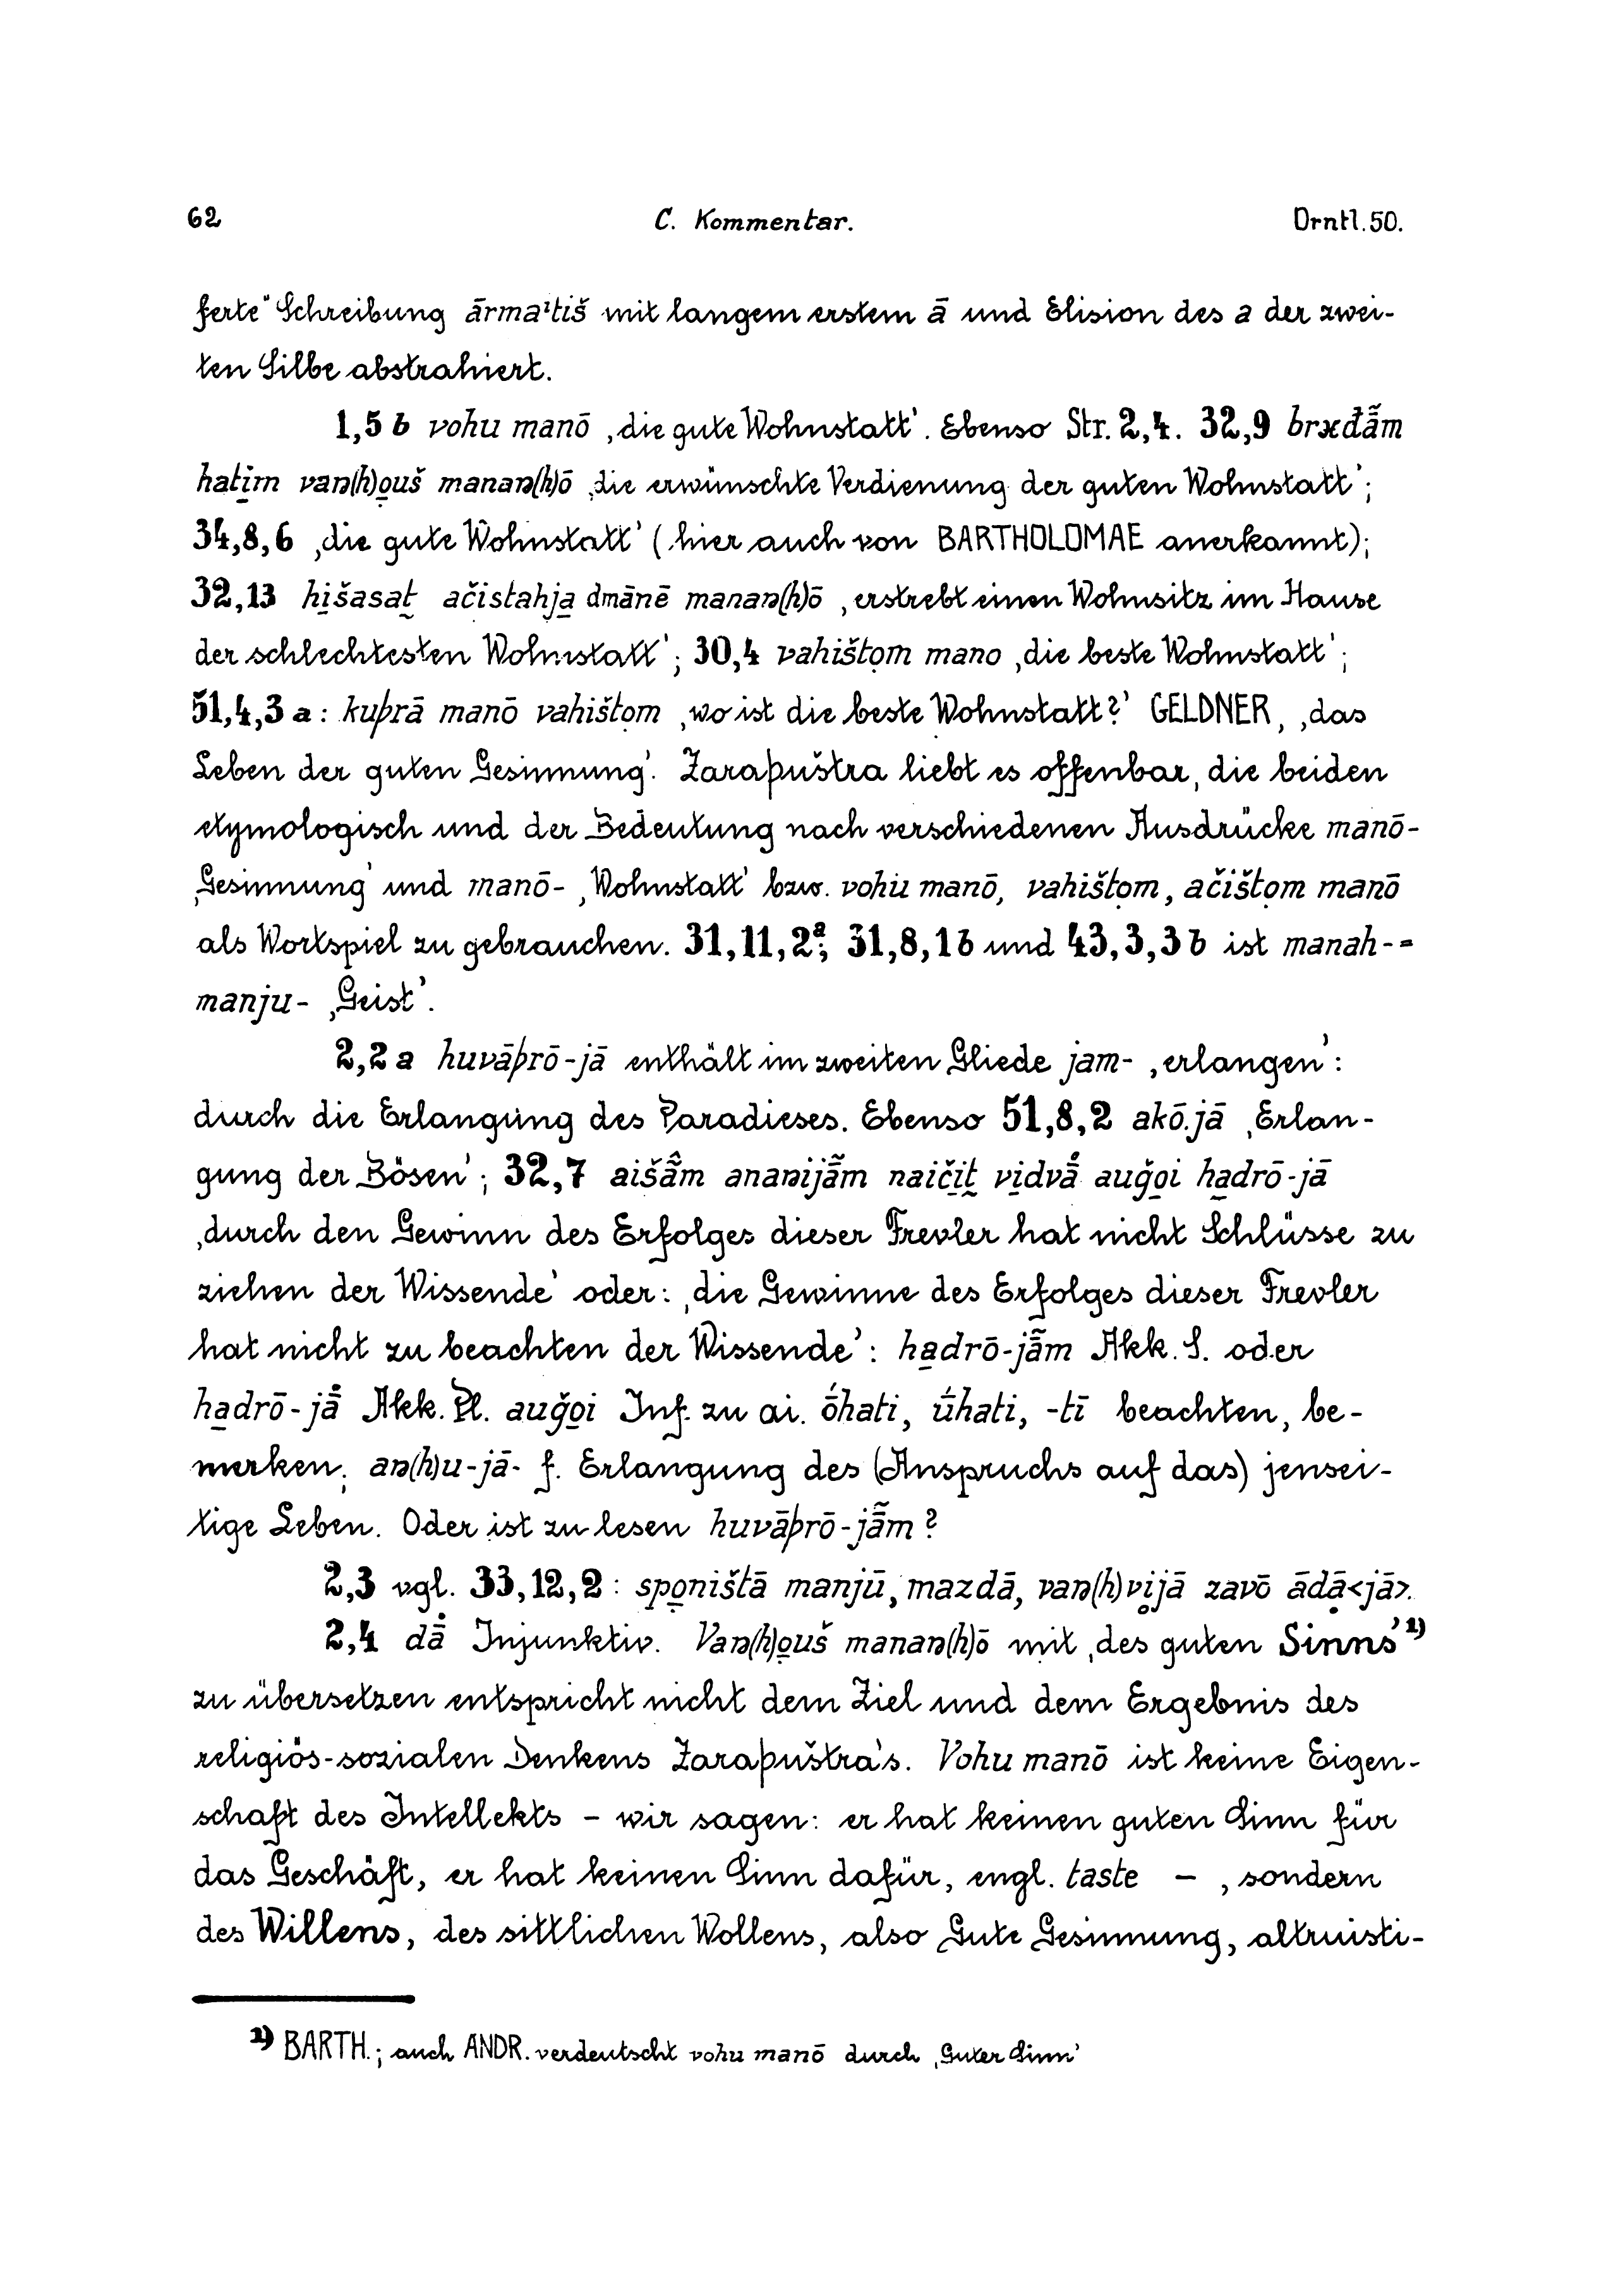 62 C. Kommentar. Orntl. 50.
ferte" Schreibung ārmaⁱtiš mit langem erstem ā und Elision des a der zwei-
ten Silbe abstrahiert.
1,5 b vohu manō ‚die gute Wohnstatt'. Ebenso Str. 2,4. 32,9 brxđā̃m
hati̱m vaŋ(h)o̱uš manaŋ(h)ō ‚die erwünschte Verdienung der guten Wohnstatt';
34,8,6 ‚die gute Wohnstatt' (hier auch von BARTHOLOMAE anerkannt);
32,13 hi̱šasat̰ ačistahja̱ dmānē manaŋ(h)ō ‚erstrebt einen Wohnsitz im Hause
der schlechtesten Wohnstatt'; 30,4 vahištọm mano ‚die beste Wohnstatt';
51,4,3 a: kuþrā manō vahištọm ‚wo ist die beste Wohnstatt?' GELDNER, ‚das
Leben der guten Gesinnung'. Zaraþuštra liebt es offenbar, die beiden
etymologisch und der Bedeutung nach verschiedenen Ausdrücke manō-
‚Gesinnung' und manō- ‚Wohnstatt' bzw. vohu manō, vahištọm, ačištọm manō
als Wortspiel zu gebrauchen. 31,11,2ª; 31,8,1b und 43,3,3 b ist manah- =
manju- ‚Geist'.
2,2 a huvāþrō-jā enthält im zweiten Gliede jam- ‚erlangen':
durch die Erlangung des Paradieses. Ebenso 51,8,2 akō.jā ‚Erlan-
gung der Bösen'; 32,7 aišā̂m anaŋijā̃m naiči̱t̰ vi̱dvā̊ auǧo̱i ha̱drō-jā
‚durch den Gewinn des Erfolges dieser Frevler hat nicht Schlüsse zu
ziehen der Wissende' oder: ‚die Gewinne des Erfolges dieser Frevler
hat nicht zu beachten der Wissende': ha̱drō-jā̃m Akk. S. oder
ha̱drō-jā̊ Akk. Pl. auǧo̱i Inf. zu ai. ṓhati, ū́hati, -tī beachten, be-
merken; aŋ(h)u-jā- f. Erlangung des (Anspruchs auf das) jensei-
tige Leben. Oder ist zu lesen huvāþrō-jā̃m?
2,3 vgl. 33,12,2: spo̱ništā manjū, mazdā, vaŋ(h)vi̥jā zavō ādā̱<jā>.
2,4 dā̊ Injunktiv. Vaŋ(h)o̱uš manaŋ(h)ō mit ‚des guten Sinns' ¹⁾
zu übersetzen entspricht nicht dem Ziel und dem Ergebnis des
religiös-sozialen Denkens Zaraþuštra's. Vohu manō ist keine Eigen-
schaft des Intellekts – wir sagen: er hat keinen guten Sinn für
das Geschäft, er hat keinen Sinn dafür, engl. taste – , sondern
des Willens, des sittlichen Wollens, also Gute Gesinnung, altruisti-
¹⁾ BARTH.; auch ANDR. verdeutscht vohu manō durch ‚Guter Sinn'